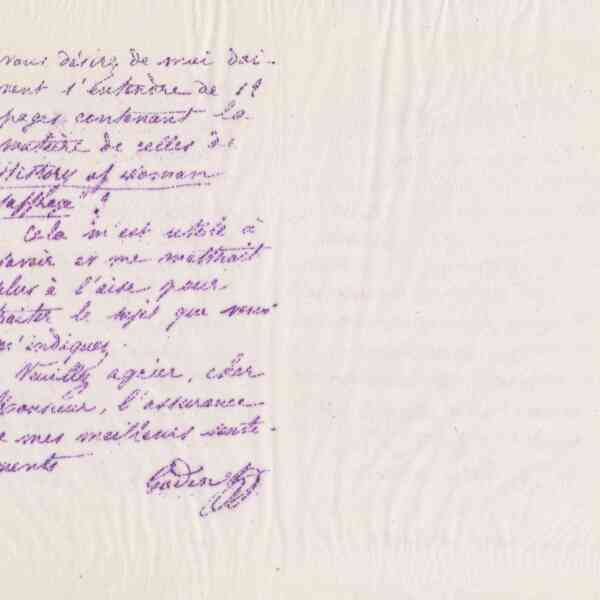 vous désirez de moi doi-
vent s'entendre de 12
pages contenant la
matière de celles de
History of woman
suffrage" ?
Cela m'est utile à
savoir et me mettrait
plus à l'aise pour
traiter le sujet que vous
m'indiquez.
Veuillez agréer, cher
Monsieur, l'assurance
de mes meilleurs senti-
ments
Godin